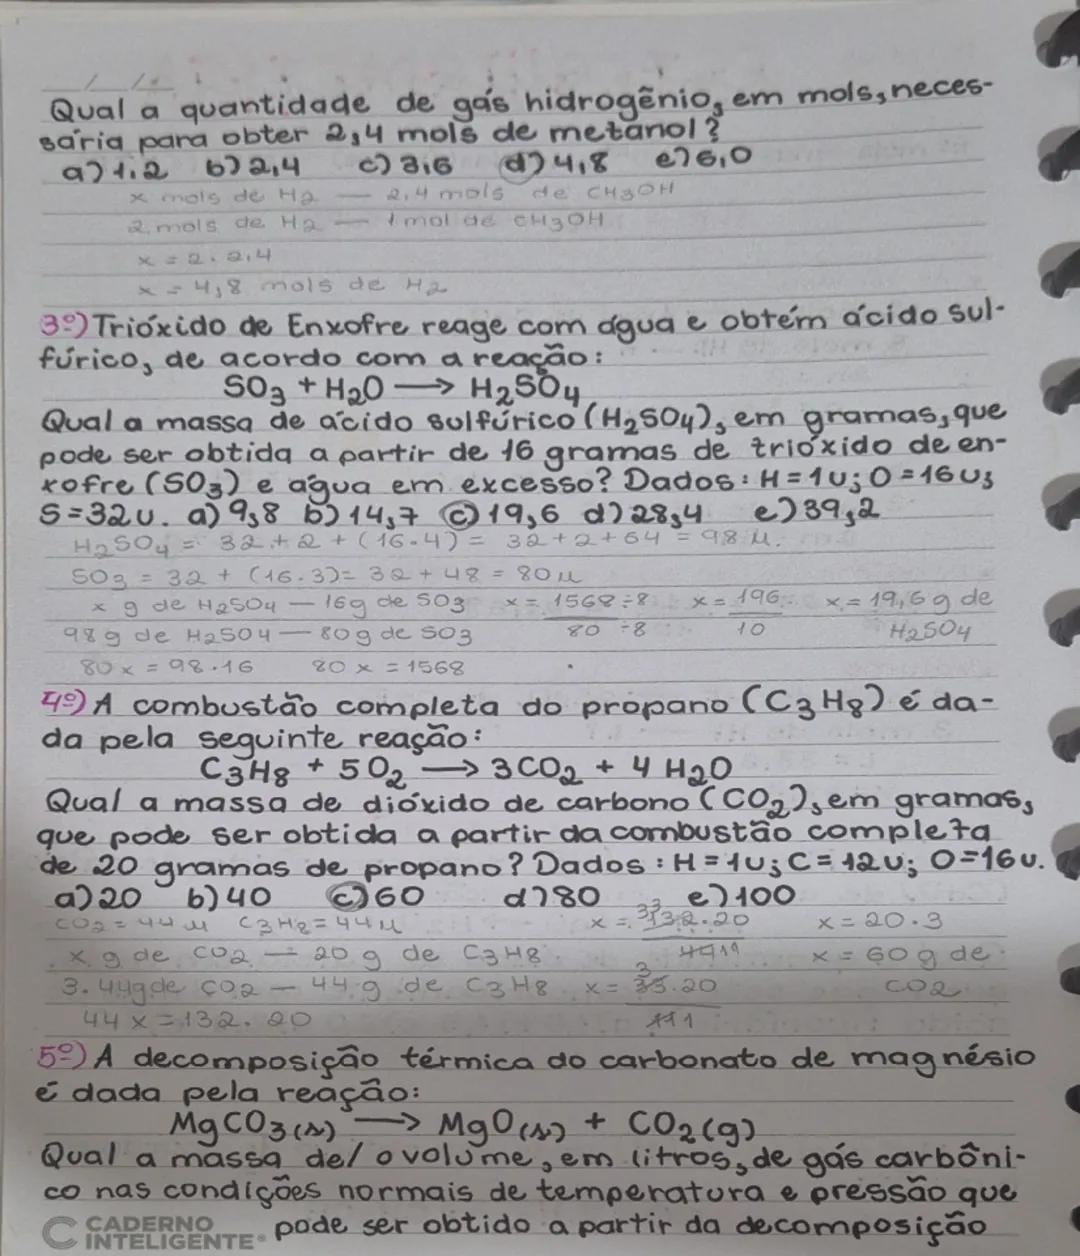 Qual a quantidade de gás hidrogênio, em mols, neces-
sária para obter 2,4 mols de metanol?
a) 1,2 b) 2,4 c) 3,6 d) 4,8 e) 6,0
x mols de H2 — 2,4 mols de CH3OH
2 mols de H2 — 1 mol de CH3OH
x = 2 . 2,4
x = 4,8 mols de H2
3º) Trióxido de Enxofre reage com água e obtém ácido sul-
fúrico, de acordo com a reação:
SO3 + H2O → H2SO4
Qual a massa de ácido sulfúrico (H2SO4), em gramas, que
pode ser obtida a partir de 16 gramas de trióxido de en-
xofre (SO3) e água em excesso? Dados: H = 1u; O = 16u;
S = 32u. a) 9,8 b) 14,7 c) 19,6 d) 28,4 e) 39,2
H2SO4 = 32 + 2 + (16.4) = 32 + 2 + 64 = 98 u.
SO3 = 32 + (16.3) = 32 + 48 = 80u
x g de H2SO4 — 16g de SO3 x = 1568 ÷8 x = 196 x = 19,6 g de
98 g de H2SO4 — 80g de SO3 80 ÷8 10 H2SO4
80x = 98.16 80x = 1568
4º) A combustão completa do propano (C3H8) é da-
da pela seguinte reação:
C3H8 + 5O2 → 3CO2 + 4H2O
Qual a massa de dióxido de carbono (CO2), em gramas,
que pode ser obtida a partir da combustão completa
de 20 gramas de propano? Dados: H = 1u; C = 12u; O = 16u.
a) 20 b) 40 c) 60 d) 80 e) 100
CO2 = 44 u C3H8 = 44u x = 132.20 x = 20.3
x g de CO2 — 20 g de C3H8 44 11 x = 60 g de
3.44g de CO2 — 44 g de C3H8 x = 33.20 CO2
44x = 132.20 11 1
5º) A decomposição térmica do carbonato de magnésio
é dada pela reação:
MgCO3(s) → MgO(s) + CO2(g)
Qual a massa de/o volume, em litros, de gás carbôni-
co nas condições normais de temperatura e pressão que
pode ser obtido a partir da decomposição
CADERNO
INTELIGENTE®